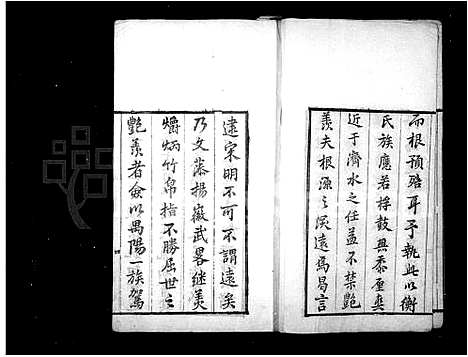 而根預培耳予執此以衡
氏族應若桴鼓無黍垕爽
近于濟水之任益不禁艷
羨夫根源之深遠焉易言
逮宋明不可不謂遠矣
乃文藻揚徽武畧继美
爝炳竹帛指不勝屈世之
艷羡者僉以禺陽一族駕